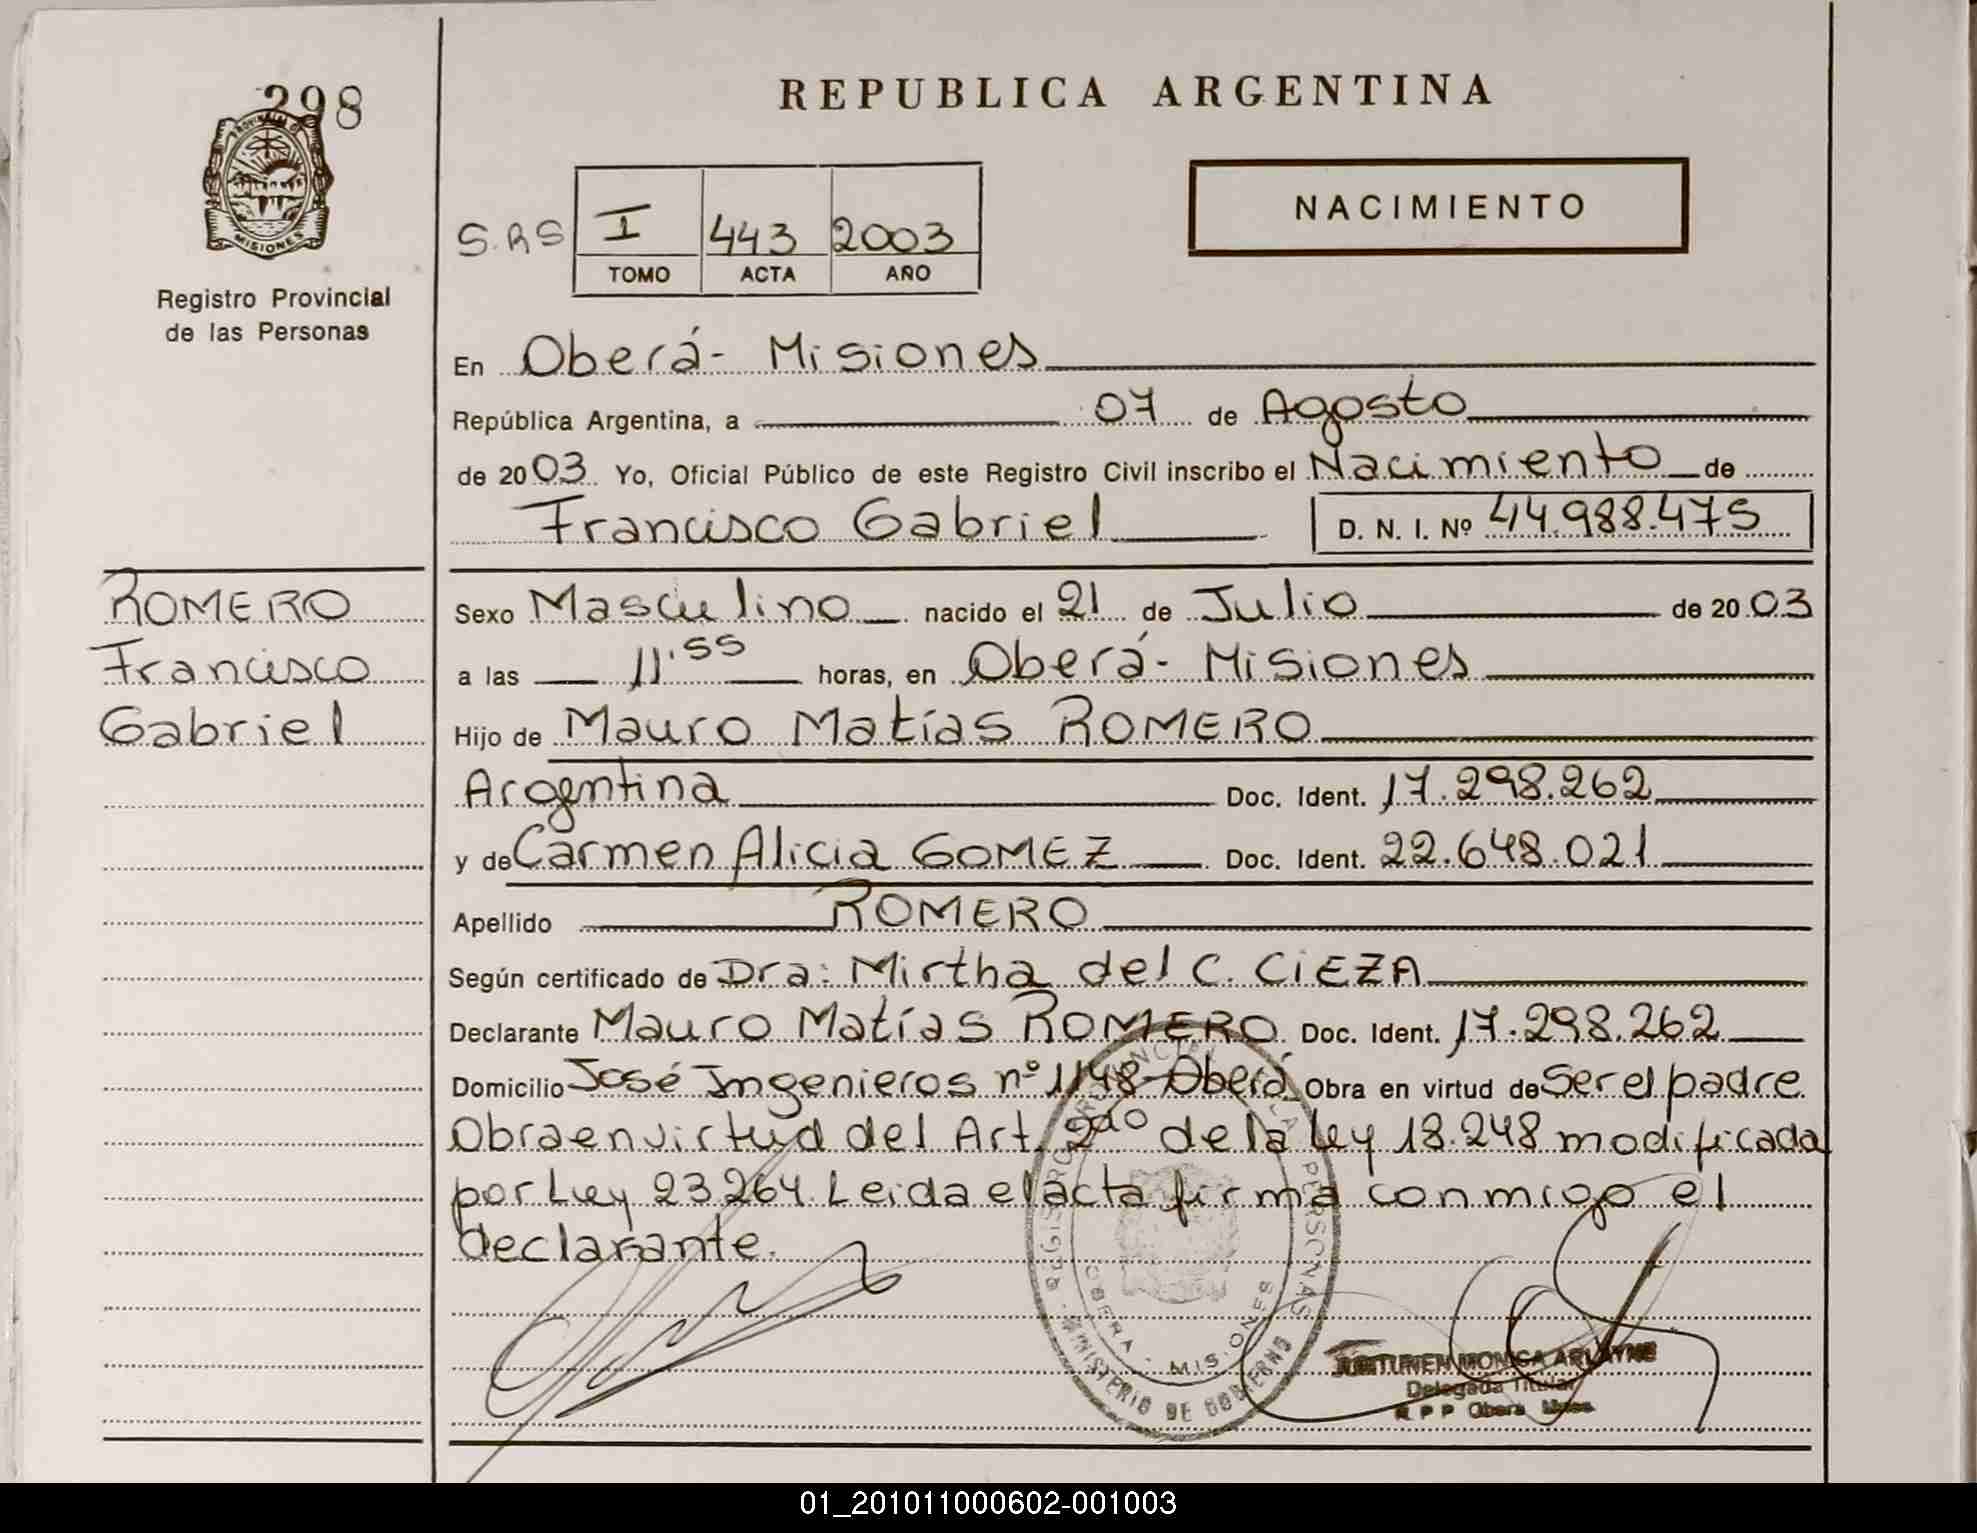 298
PROVINCIA DE
MISIONES
Registro Provincial
de las Personas
REPUBLICA ARGENTINA
S.RS I 443 2003
TOMO ACTA AÑO
NACIMIENTO
En Oberá- Misiones
República Argentina, a 07 de Agosto
de 2003 Yo, Oficial Público de este Registro Civil inscribo el Nacimiento de
Francisco Gabriel D. N. I. Nº 44.988.475
ROMERO
Francisco
Gabriel
Sexo Masculino nacido el 21 de Julio de 2003
a las 11'55 horas, en Oberá- Misiones
Hijo de Mauro Matías ROMERO
Argentina Doc. Ident. 17.298.262
y de Carmen Alicia GOMEZ Doc. Ident. 22.648.021
Apellido ROMERO
Según certificado de Dra: Mirtha del C. CiEZA
Declarante Mauro Matías ROMERO Doc. Ident. 17.298.262
Domicilio José Ingenieros nº 1148-Oberá Obra en virtud de Ser el padre
Obra en virtud del Art. 2do de la Ley 18.248 modificada
por Ley 23.264. Leida el acta firma conmigo el
declarante.
REGISTRO PROVINCIAL DE LAS PERSONAS
OBERA - MISIONES
MINISTERIO DE GOBIERNO
MONICA
Delegada Titular
R P P Obera Mnes.
01_201011000602-001003